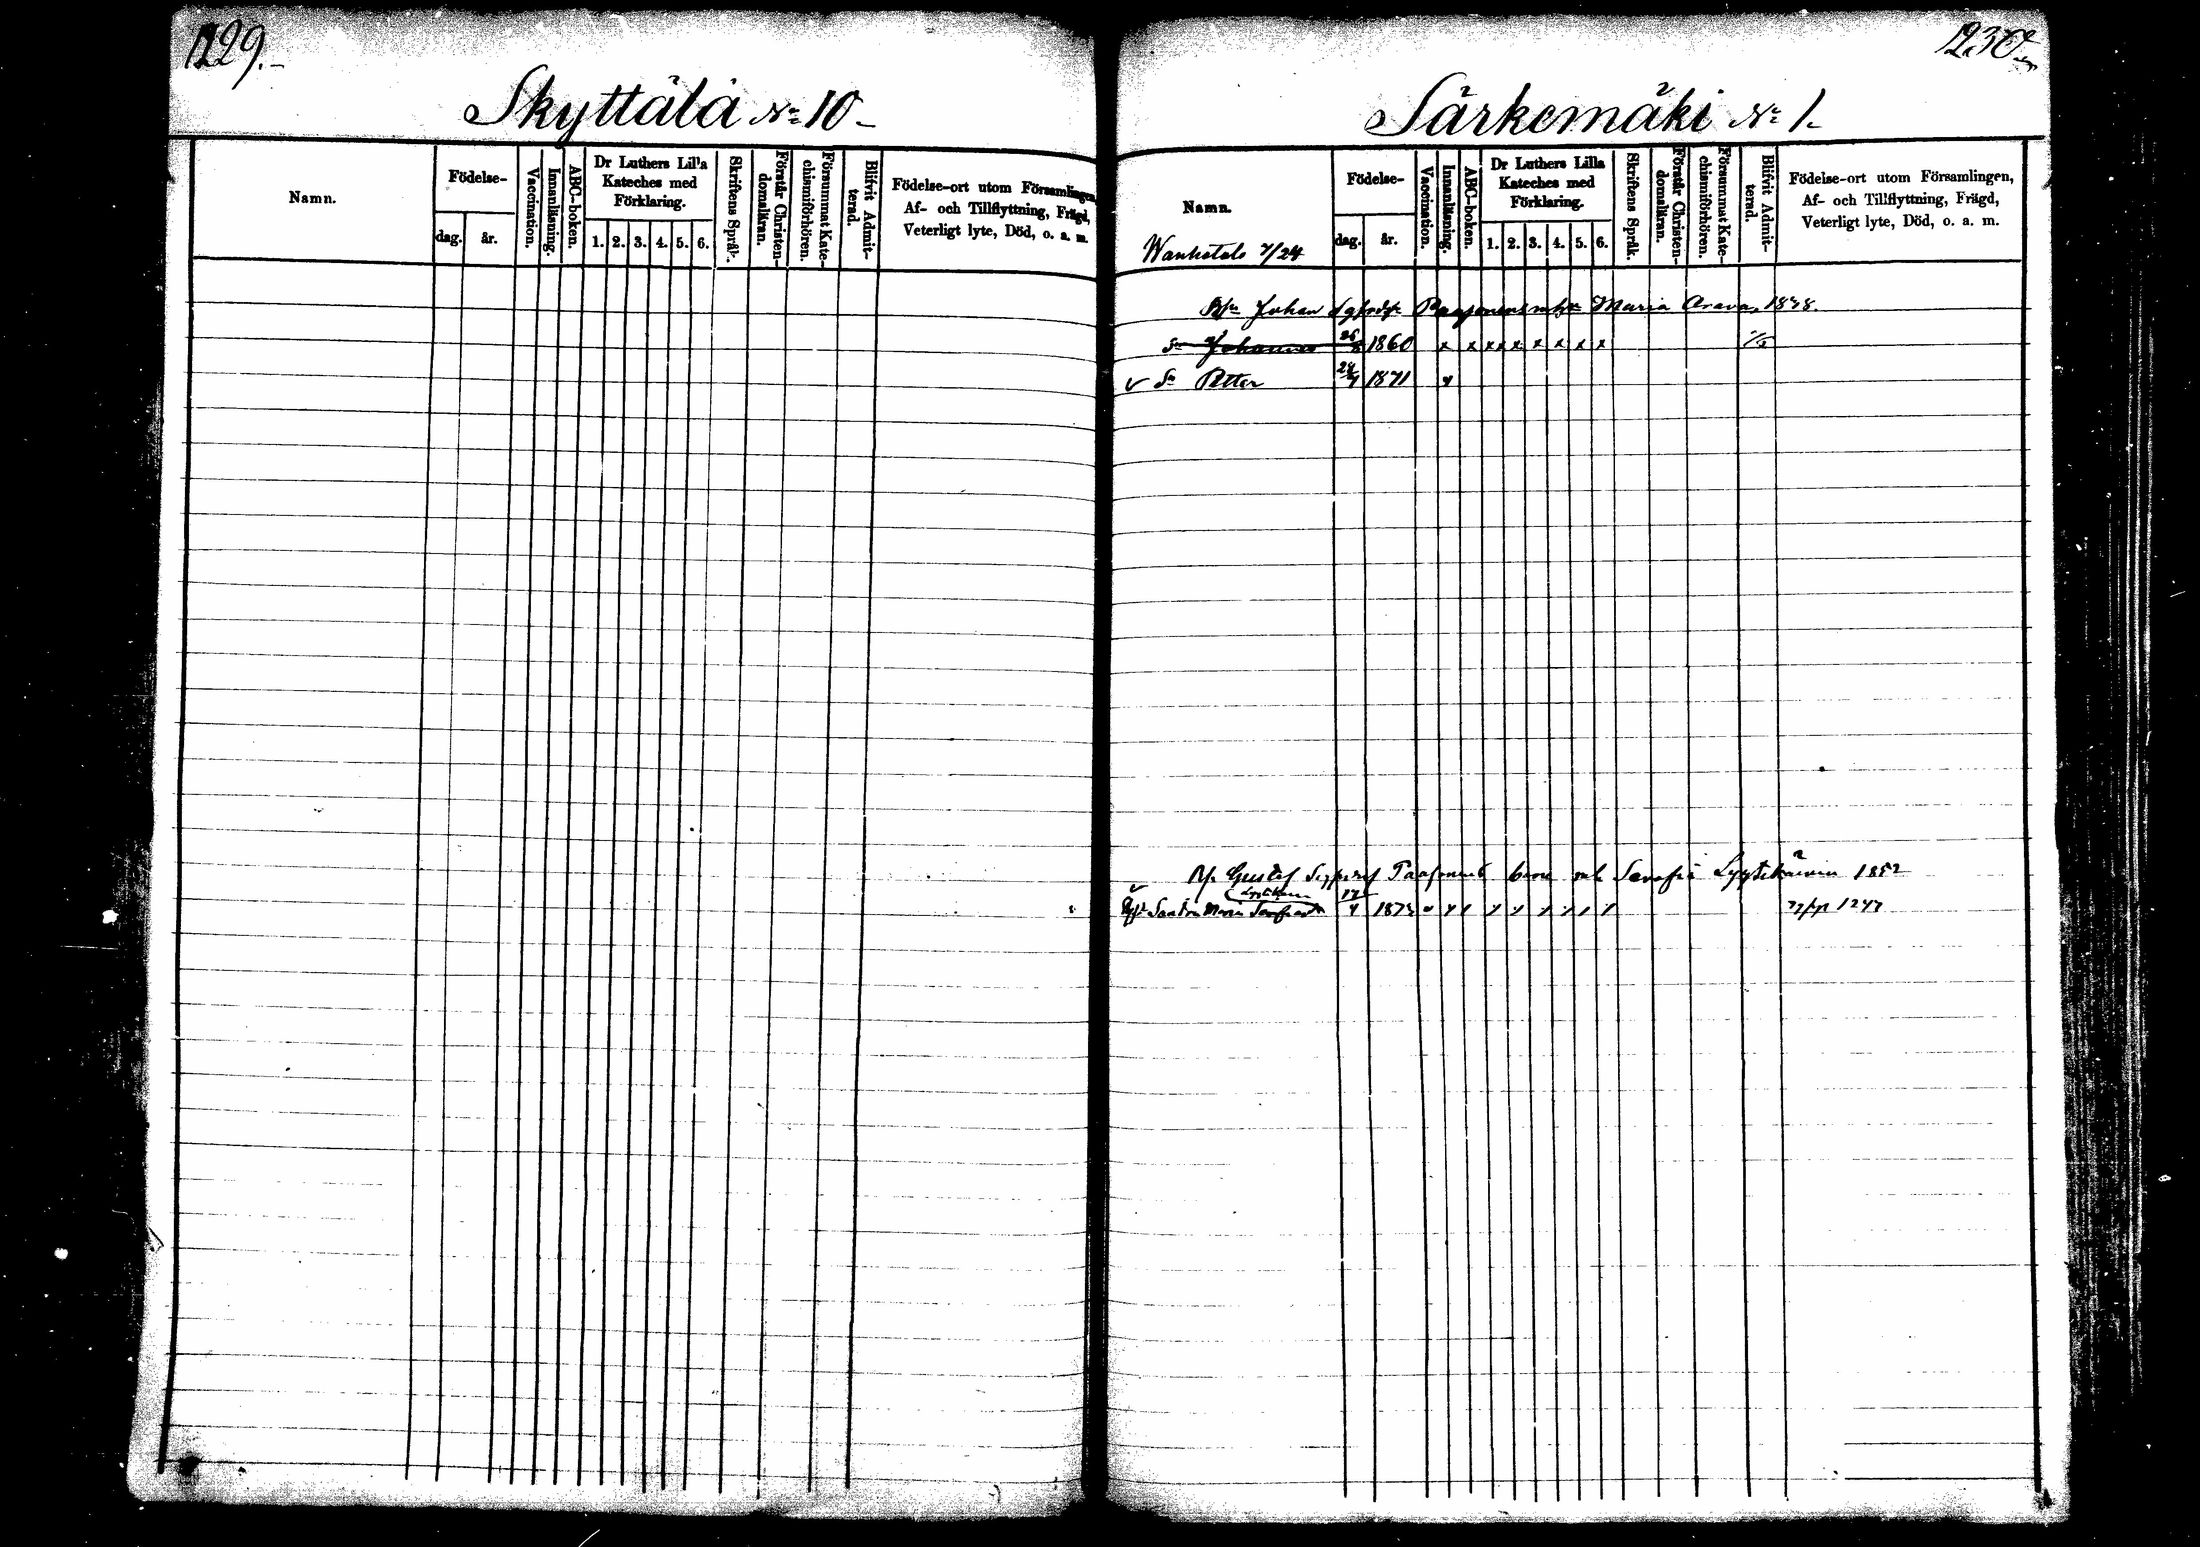 1229.
Skyttälä No 10
Namn.
Födelse-
dag. år.
Vaccination.
Innanläsning.
ABC-boken.
Dr Luthers Lilla
Kateches med
Förklaring.
1. 2. 3. 4. 5. 6.
Skriftens Språk.
Förstår Christen-
domsläran.
Försummat Kate-
chismiförhören.
Blifvit Admit-
terad.
Födelse-ort utom Församlingen,
Af- och Tillflyttning, Frägd,
Veterligt lyte, Död, o. a. m.
1230
Särkemäki No 1.
Namn.
Födelse-
dag. år.
Vaccination.
Innanläsning.
ABC-boken.
Dr Luthers Lilla
Kateches med
Förklaring.
1. 2. 3. 4. 5. 6.
Skriftens Språk.
Förstår Christen-
domsläran.
Försummat Kate-
chismiförhören.
Blifvit Admit-
terad.
Födelse-ort utom Församlingen,
Af- och Tillflyttning, Frägd,
Veterligt lyte, Död, o. a. m.
Wanhatalo 7/24
Johan Maria Arava 1838.
Sn Johannes 1860 x x x x x x x x x
v Sn Petter 24/4 1871
Gustaf Paasonens Serafia Lyytikäinen 1852
Maria 1873 1247